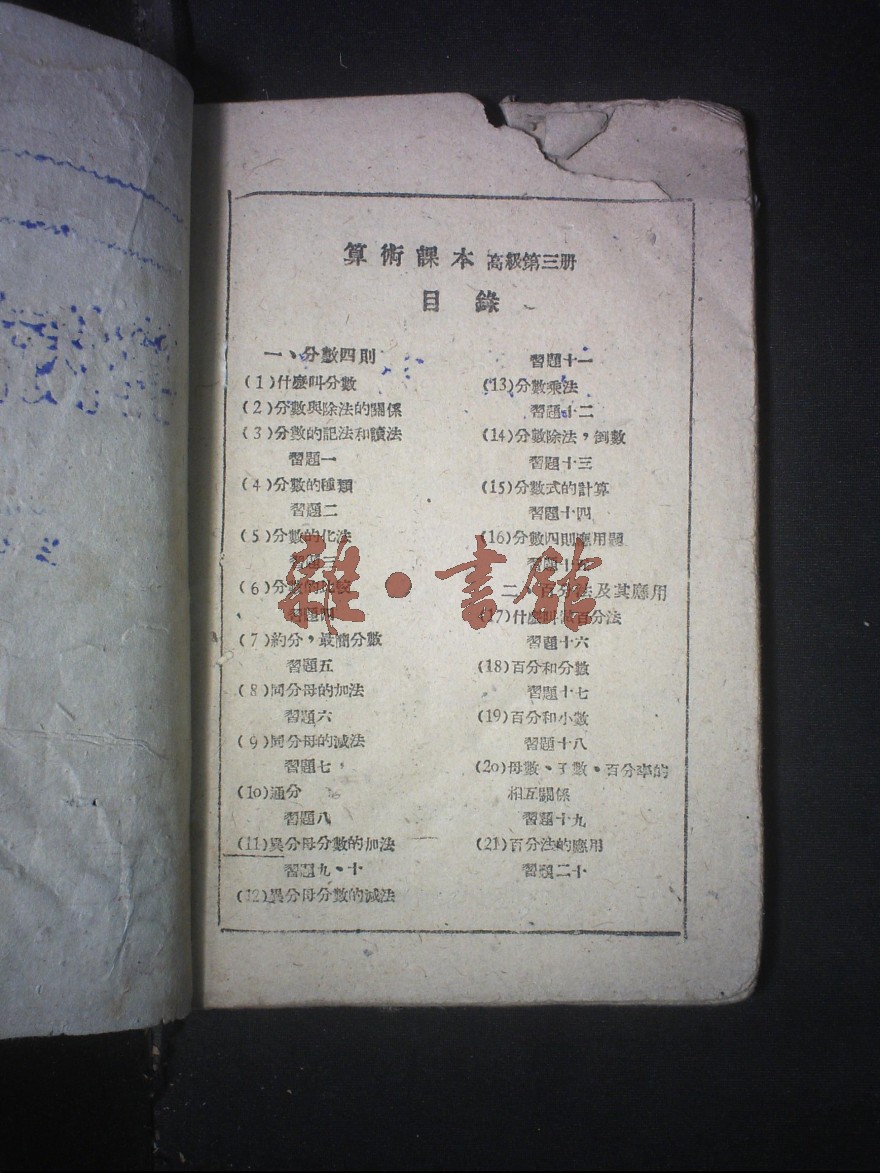 算術課本 高級第三册
目錄
一、分數四則
(1)什麼叫分數
(2)分數與除法的關係
(3)分數的記法和讀法
習題一
(4)分數的種類
習題二
(5)分數的化法
習題三
(6)分數的比較
習題四
(7)約分，最簡分數
習題五
(8)同分母的加法
習題六
(9)同分母的減法
習題七
(10)通分
習題八
(11)異分母分數的加法
習題九、十
(12)異分母分數的減法
習題十一
(13)分數乘法
習題十二
(14)分數除法，倒數
習題十三
(15)分數式的計算
習題十四
(16)分數四則應用題
習題十五
二、百分法及其應用
(17)什麼叫做百分法
習題十六
(18)百分和分數
習題十七
(19)百分和小數
習題十八
(20)母數、子數、百分率的
相互關係
習題十九
(21)百分法的應用
習題二十
雜·書館